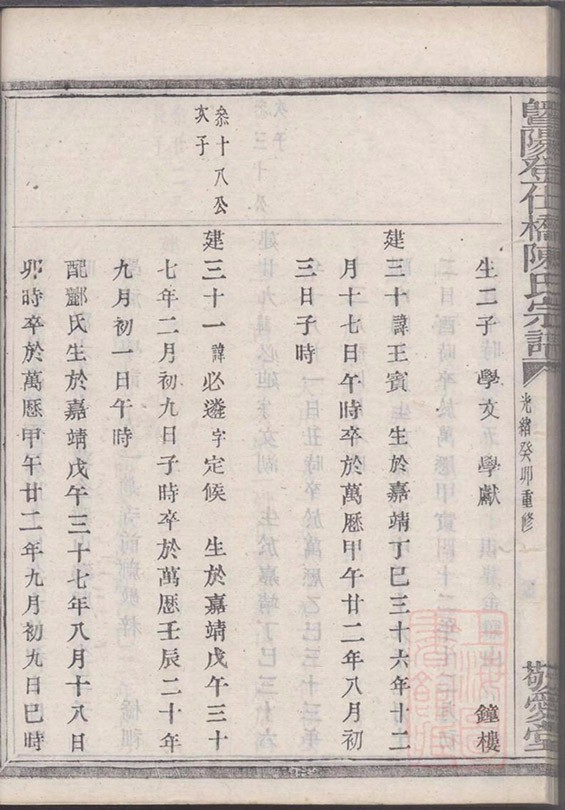 暨陽登仕橋陳氏宗譜
光緒癸卯重修
敬愛堂
生二子 學文 學獻 鐘樓
建三十諱王賓 生於嘉靖丁巳三十六年十二
月十七日午時卒於萬歷甲午廿二年八月初
三日子時
叅十八公
亥子
建三十一諱必遴字定候 生於嘉靖戊午三十
七年二月初九日子時卒於萬歷壬辰二十年
九月初一日午時
配酈氏生於嘉靖戊午三十七年八月十八日
卯時卒於萬歷甲午廿二年九月初九日巳時